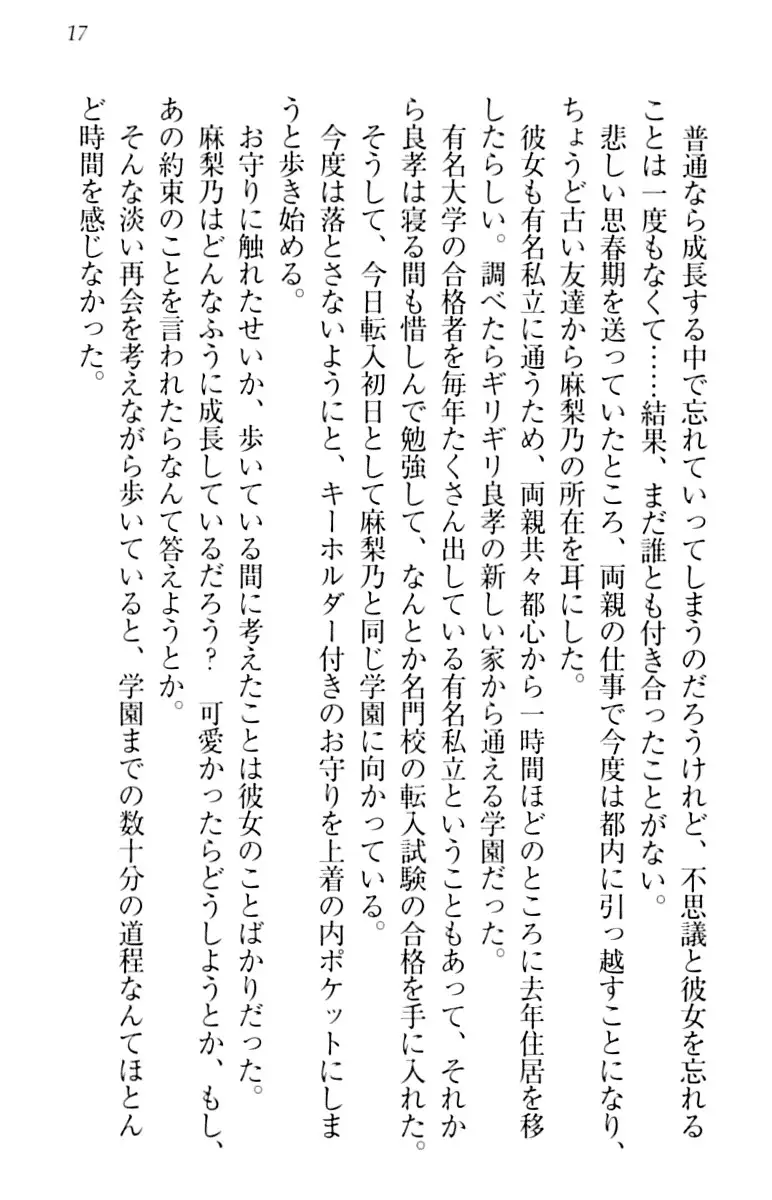 17
普通なら成長する中で忘れていってしまうのだろうけれど、不思議と彼女を忘れる
ことは一度もなくて……結果、まだ誰とも付き合ったことがない。
悲しい思春期を送っていたところ、両親の仕事で今度は都内に引っ越すことになり、
ちょうど古い友達から麻梨乃の所在を耳にした。
彼女も有名私立に通うため、両親共々都心から一時間ほどのところに去年住居を移
したらしい。調べたらギリギリ良孝の新しい家から通える学園だった。
有名大学の合格者を毎年たくさん出している有名私立ということもあって、それか
ら良孝は寝る間も惜しんで勉強して、なんとか名門校の転入試験の合格を手に入れた。
そうして、今日転入初日として麻梨乃と同じ学園に向かっている。
今度は落とさないようにと、キーホルダー付きのお守りを上着の内ポケットにしま
うと歩き始める。
お守りに触れたせいか、歩いている間に考えたことは彼女のことばかりだった。
麻梨乃はどんなふうに成長しているだろう？　可愛かったらどうしようとか、もし、
あの約束のことを言われたらなんて答えようとか。
そんな淡い再会を考えながら歩いていると、学園までの数十分の道程なんてほとん
ど時間を感じなかった。